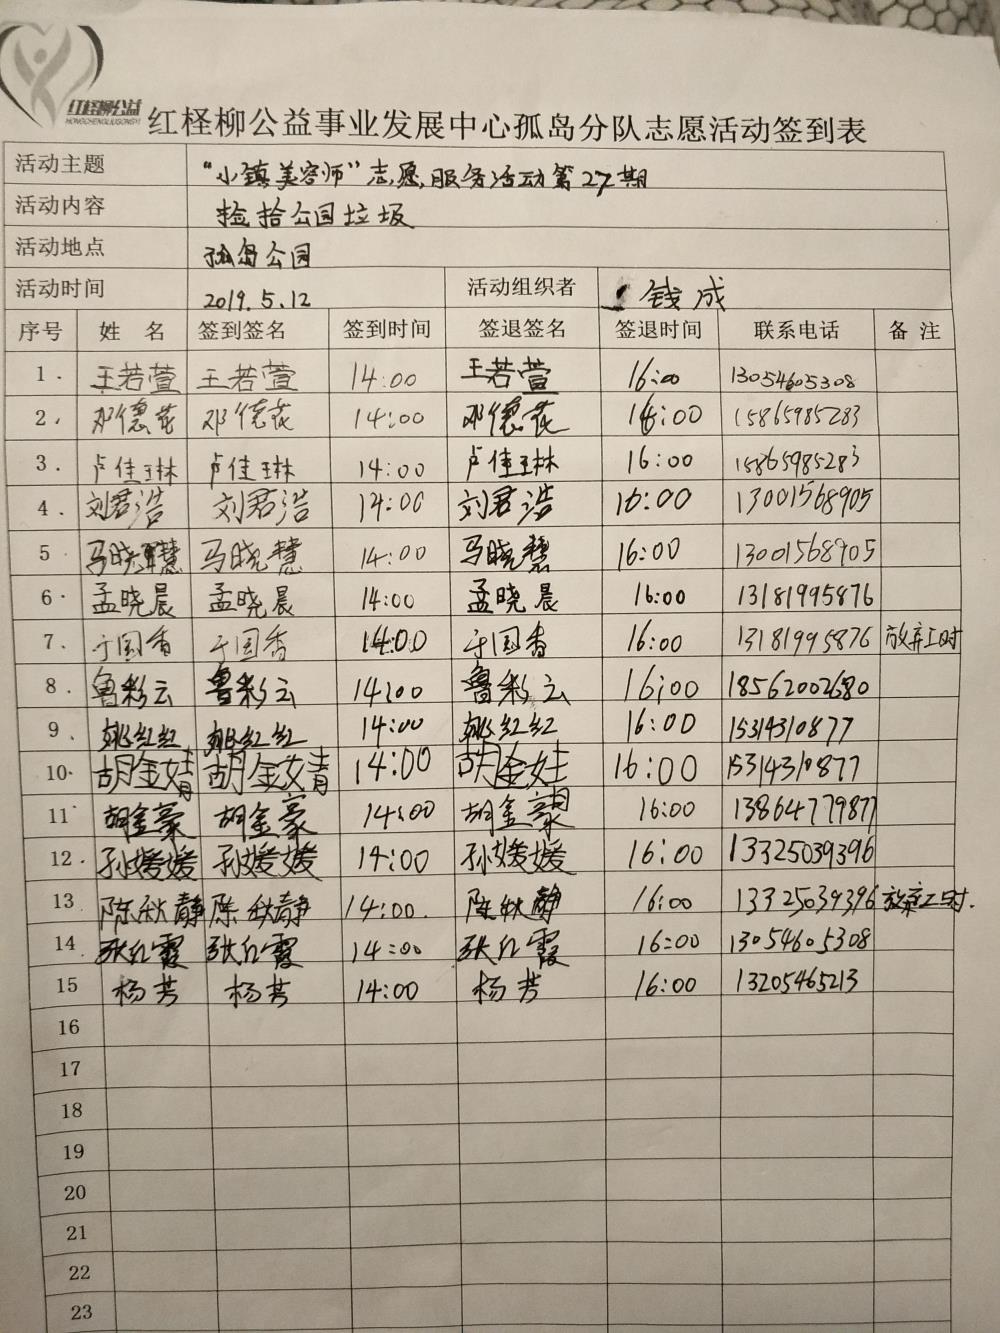 红柽柳公益
HONGCHENGLIUGONGYI
红柽柳公益事业发展中心孤岛分队志愿活动签到表
活动主题 “小镇美容师”志愿服务活动第27期
活动内容 捡拾公园垃圾
活动地点 孤岛公园
活动时间 2019.5.12 活动组织者 钱成
序号 姓 名 签到签名 签到时间 签退签名 签退时间 联系电话 备 注
1. 王若萱 王若萱 14:00 王若萱 16:00 13054605308
2. 邓德花 邓德花 14:00 邓德花 16:00 15865985283
3. 卢佳琳 卢佳琳 14:00 卢佳琳 16:00 15865985283
4. 刘君浩 刘君浩 14:00 刘君浩 16:00 13001568905
5 马晓慧 马晓慧 14:00 马晓慧 16:00 13001568905
6 孟晓晨 孟晓晨 14:00 孟晓晨 16:00 13181995876
7. 于国香 于国香 14:00 于国香 16:00 13181995876 放弃工时
8. 鲁彩云 鲁彩云 14:00 鲁彩云 16:00 18562002680
9. 姚红红 姚红红 14:00 姚红红 16:00 15314310877
10 胡金婧 胡金婧 14:00 胡金 16:00 15314310877
11 胡金豪 胡金豪 14:00 胡金豪 16:00 13864779877
12. 孙媛媛 孙媛媛 14:00 孙媛媛 16:00 13325039396
13 陈秋静 陈秋静 14:00. 陈秋静 16:00 13325039396 放弃工时.
14 张红霞 张红霞 14:00 张红霞 16:00 13054605308
15 杨芳 杨芳 14:00 杨芳 16:00 13205465213
16
17
18
19
20
21
22
23